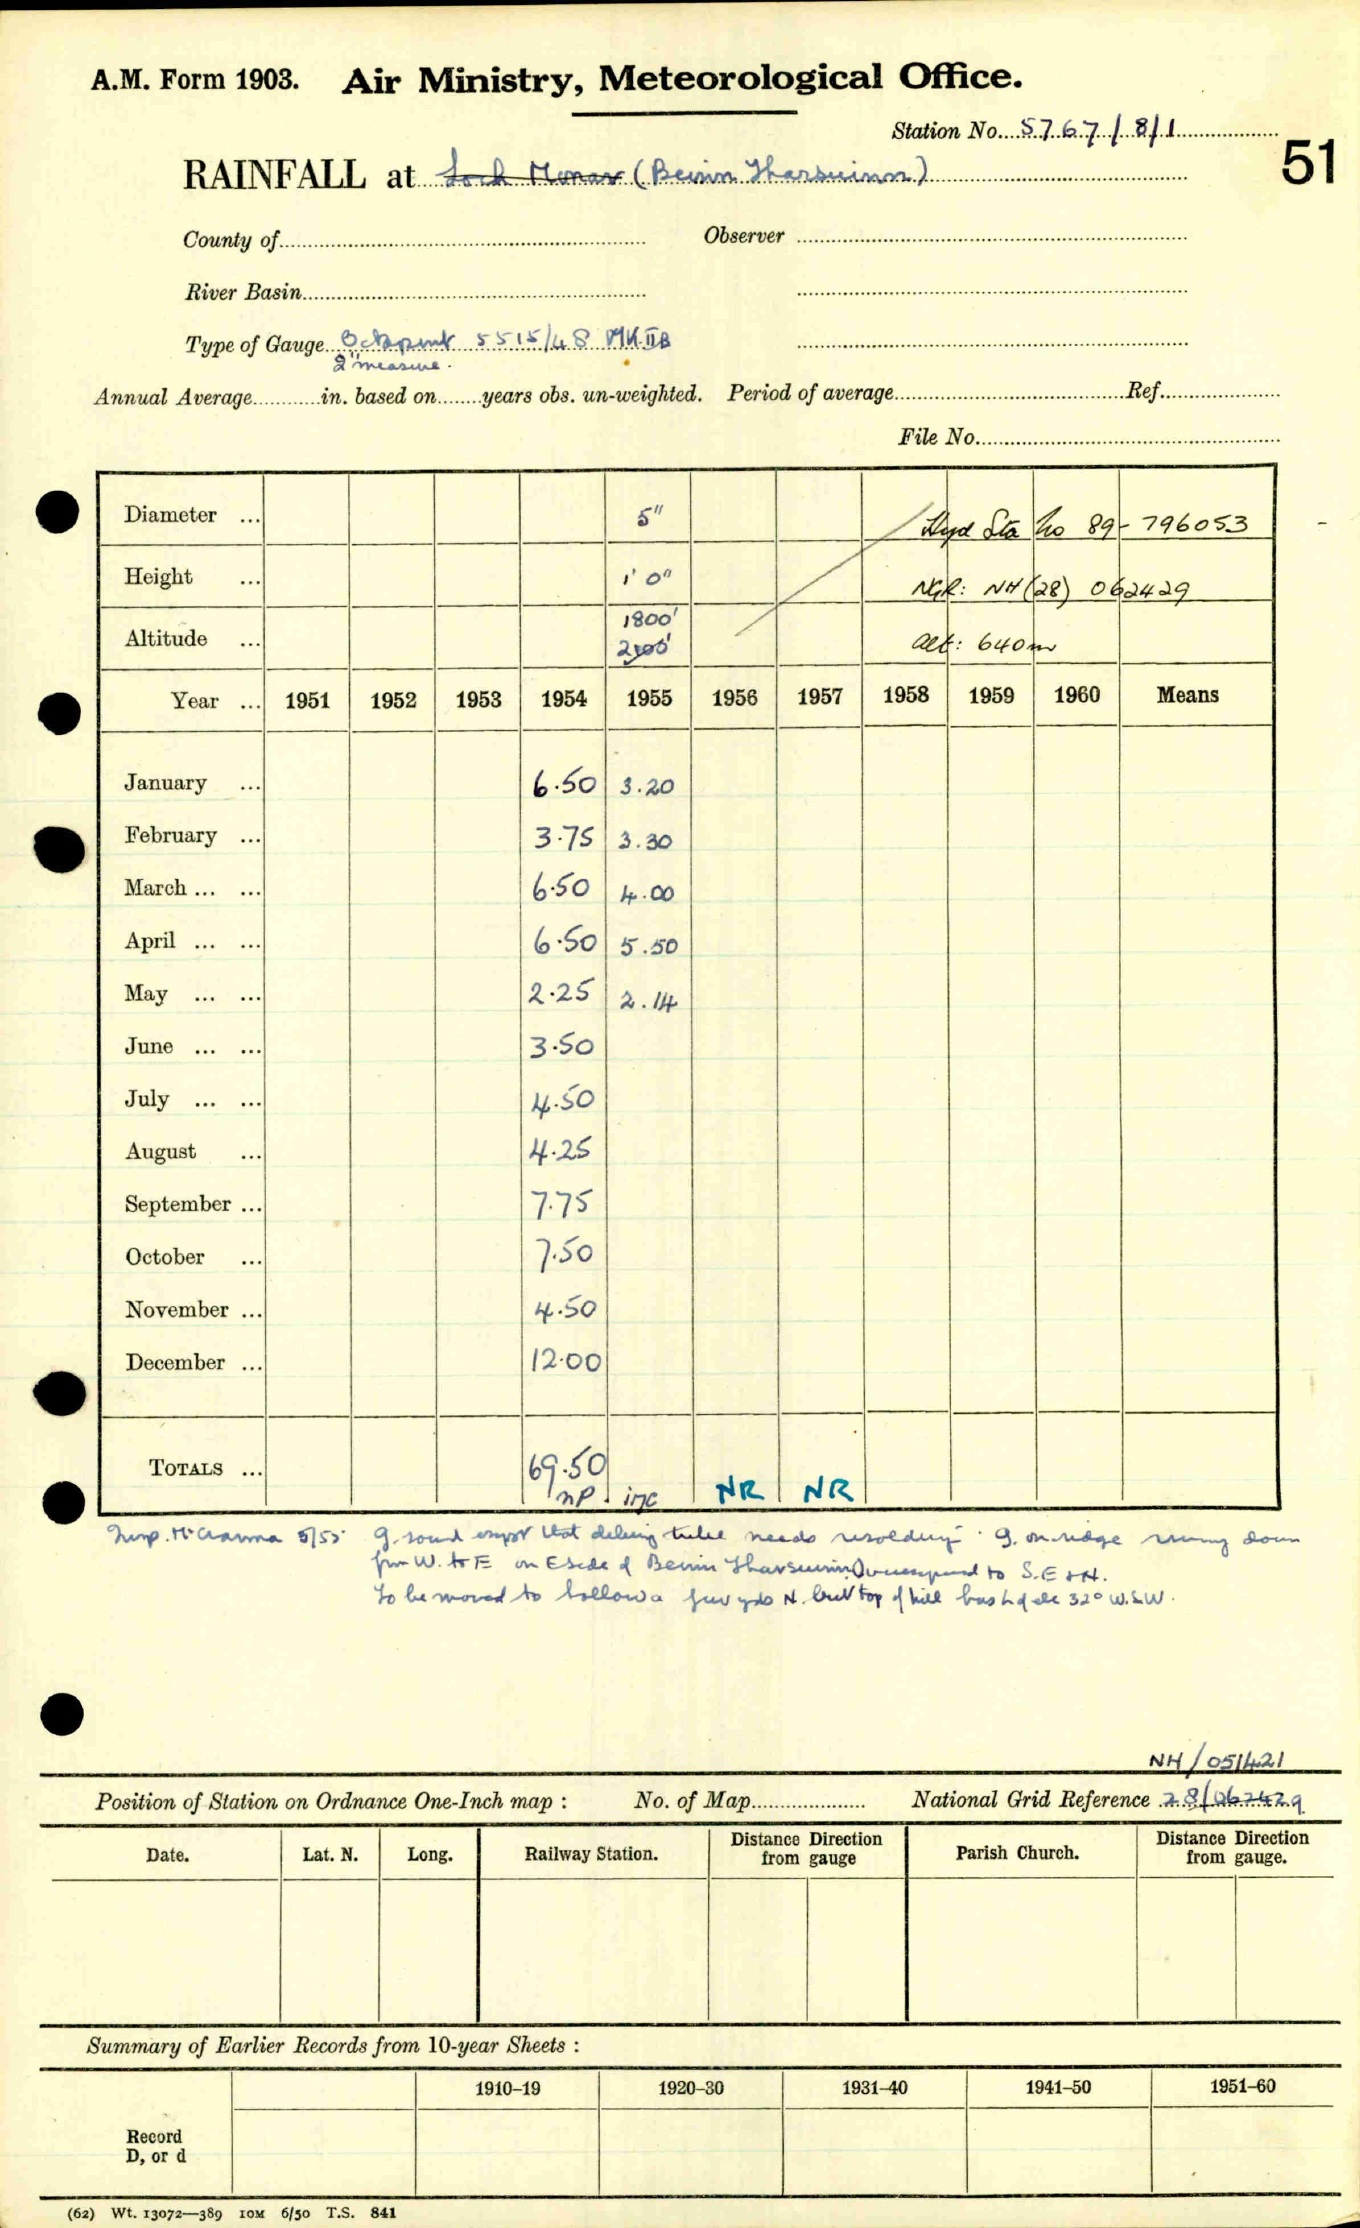 A.M. Form 1903. Air Ministry, Meteorological Office.
Station No. 5767/8/1
51
RAINFALL at Loch Monar (Beinn Tharsuinn)
County of Observer
River Basin
Type of Gauge Octapent 5515/48 MK IIB
2" measure.
Annual Average in. based on years obs. un-weighted. Period of average Ref.
File No.
Diameter ... 5" Hyd Sta No 89-796053
Height ... 1' 0" NGR: NH (28) 062429
1800'
Altitude ... 2100' alt: 640m
Year ... 1951 1952 1953 1954 1955 1956 1957 1958 1959 1960 Means
January ... 6.50 3.20
February ... 3.75 3.30
March ... ... 6.50 4.00
April ... ... 6.50 5.50
May ... ... 2.25 2.14
June ... ... 3.50
July ... ... 4.50
August ... 4.25
September ... 7.75
October ... 7.50
November ... 4.50
December ... 12.00
TOTALS ... 69.50
NP. inc NR NR
Insp. 5/55 G. sound except that tube needs G. on ridge running down
from W. to E on E side of Beinn Tharsuinn to S.E + H.
To be moved to hollow a few yds N. but top of hill has of ele 32° W.S.W.
NH/051421
Position of Station on Ordnance One-Inch map : No. of Map National Grid Reference 28/062429
Date. Lat. N. Long. Railway Station. Distance Direction from gauge Parish Church. Distance Direction from gauge.
Summary of Earlier Records from 10-year Sheets :
1910–19 1920–30 1931–40 1941–50 1951–60
Record
D, or d
(62) Wt. 13072—389 10M 6/50 T.S. 841